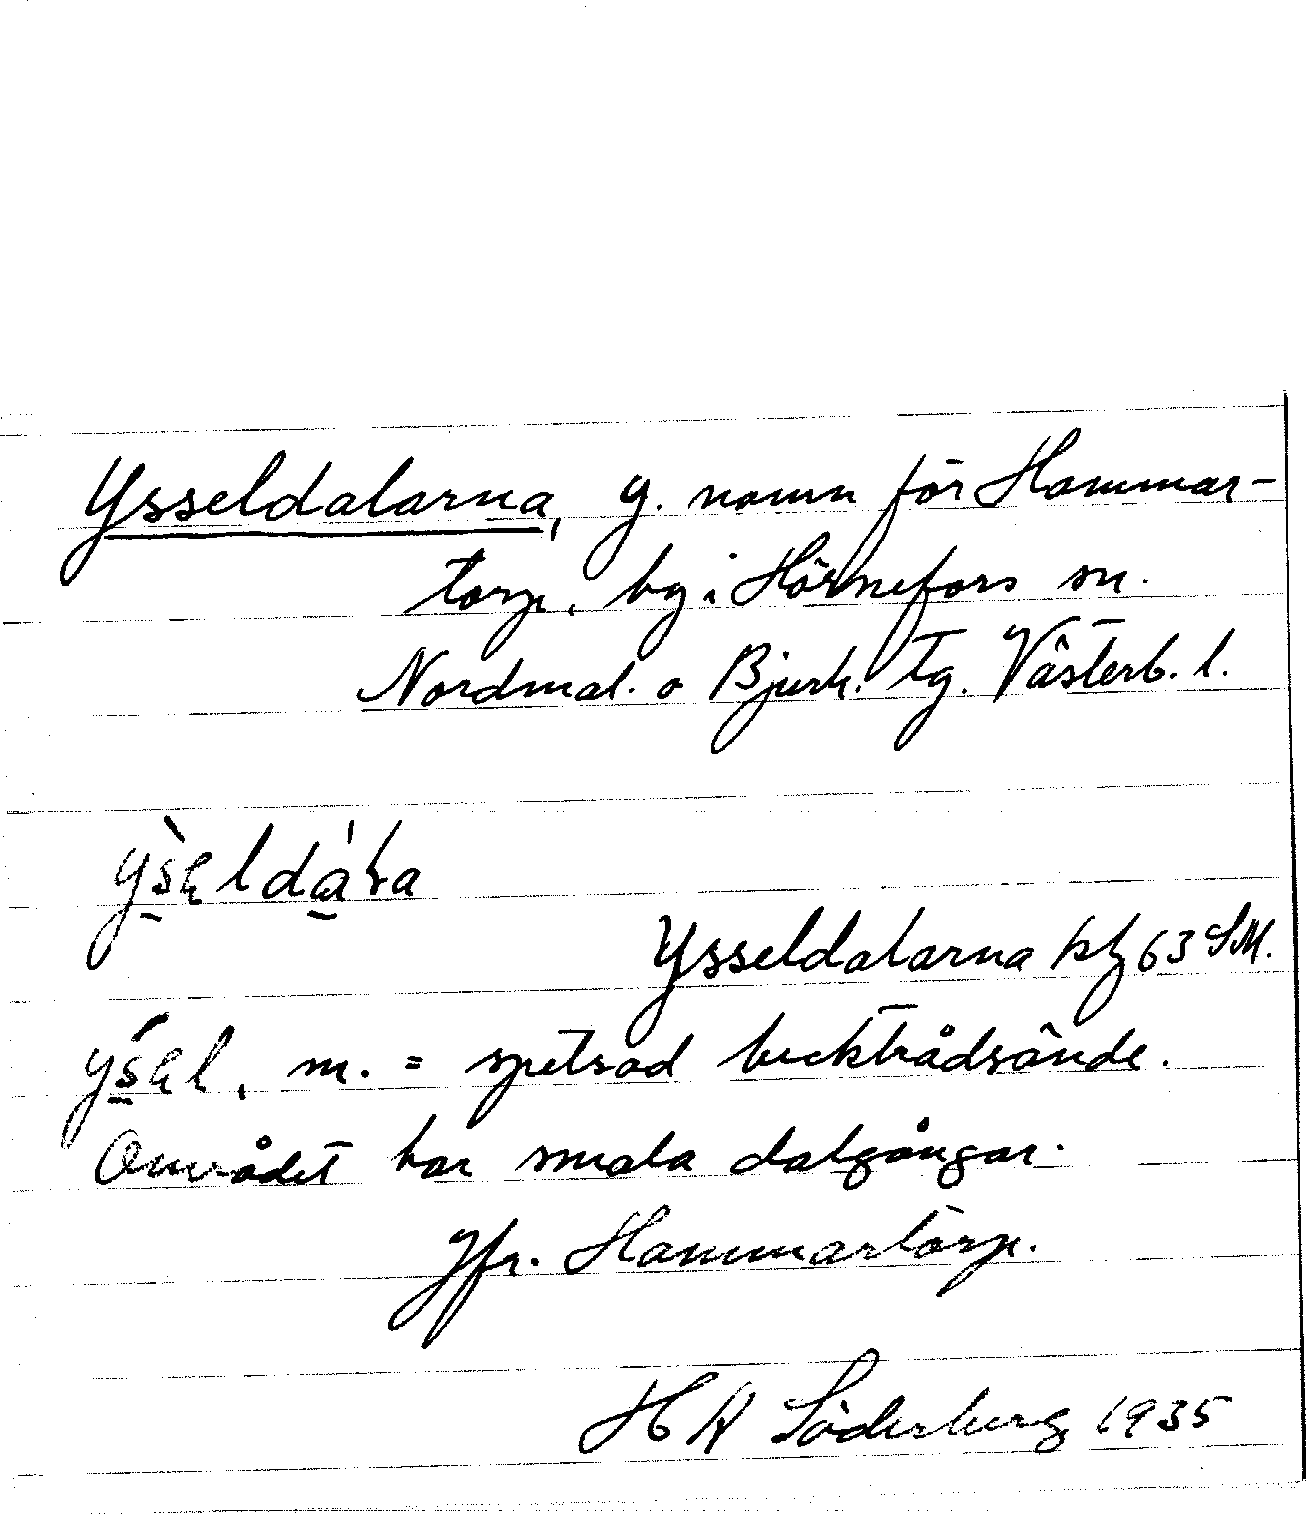 Ysseldalarna, g. namn för Hammar-
torp, by i Hörnefors sn.
Nordmal. o Bjurh. tg. Västerb. l.
Ysseldalarna bl 63 SM.
m. = spetsad becktrådsände.
Området har smala dalgångar.
Jfr. Hammartorp.
H A Söderberg 1935